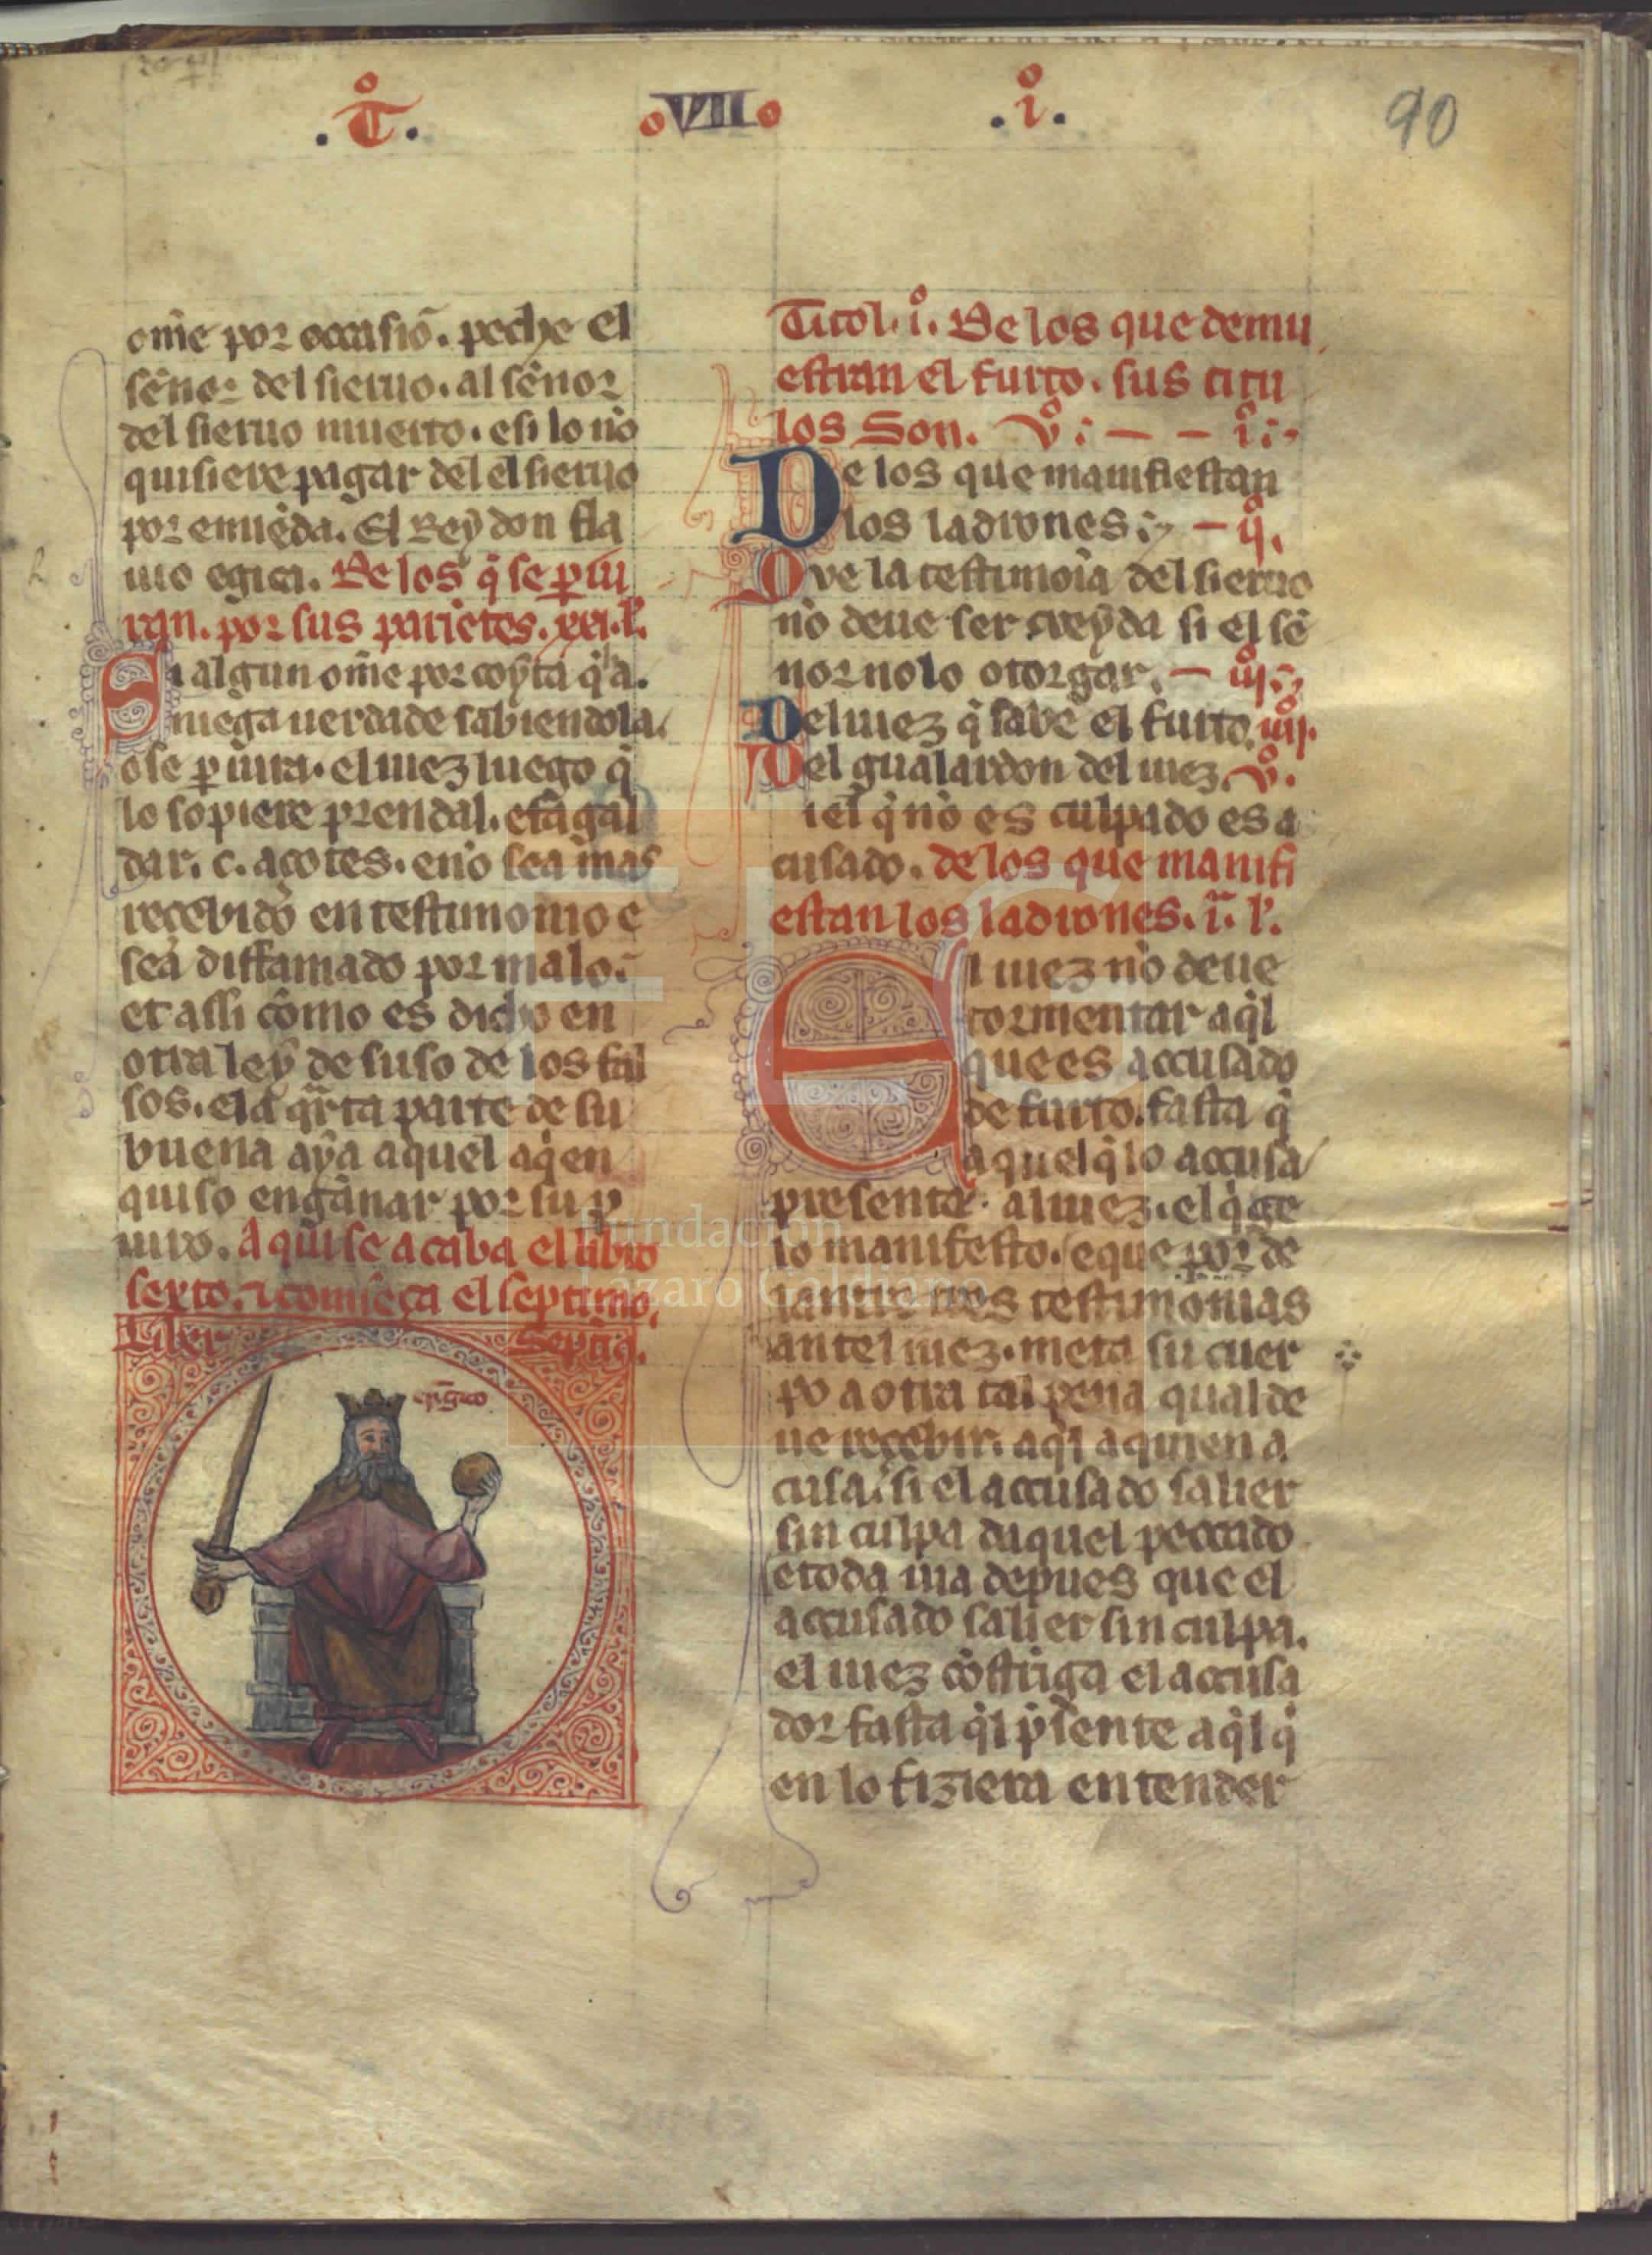 .T̊. VII .i̊. 90
om̃e por occasiõ. peche el
sẽnor del sieruo. al sẽnor
del sieruo muerto. esi lo nõ
quisiere pagar del el sieruo
por emiẽda. El Rey don fla
uio egica. De los q̃ se periu
ran. por sus parietes. xxi. l̃.
Si algun om̃e por coyta q̃ a.
niega uerdade sabiendola.
o se periura. el iuez luego q̃
lo sopiere prendal. e fãgal
dar. c. açotes. e nõ sea mas
reçebido en testimonio e
sea diffamado por malo.
et assi cõmo es dicho en
otra ley de suso de los fal
sos. e la q̃rta parte de su
buena aya aquel a q̃en
quiso engãnar por su p
iuro. Aqui se acaba el libro
sexto. ⁊ comiẽça el septimo.
Liber Septiᷓ.
Titol. i̊. De los que demu
estran el furto. sus titu
los Son. v̊: — — i̊:
De los que manifiestan
los ladrones: — ij̊.
Que la testimoĩa del sieruo
nõ deue ser creyda si el sẽ
nor no lo otorgar. — iij̊.
Del iuez q̃ sabe el furto. iiij̊.
Del gualardon del iuez. v̊.
i el q̃ nõ es culpado es a
cusado. de los que manifi
estan los ladrones. i. l̃.
El iuez nõ deue
tormentar aq̃l
que es accusado
de furto. fasta q̃
aquel q̃ lo accusa
presente al iuez. el q̃ ge
lo manifesto. e que por de
lantre tres testimonias
antel iuez. meta su cuer
po a otra tal pena qual de
ue reçebir. aq̃l a quien a
cusa. si el accusado salier
sin culpa daquel peccado
e toda uia depues que el
accusado salier sin culpa.
el iuez cõstriga el accusa
dor fasta q̃l p̃sente aq̃l q̃
en lo fiziera entender
Fundación
Lázaro Galdiano
FLG